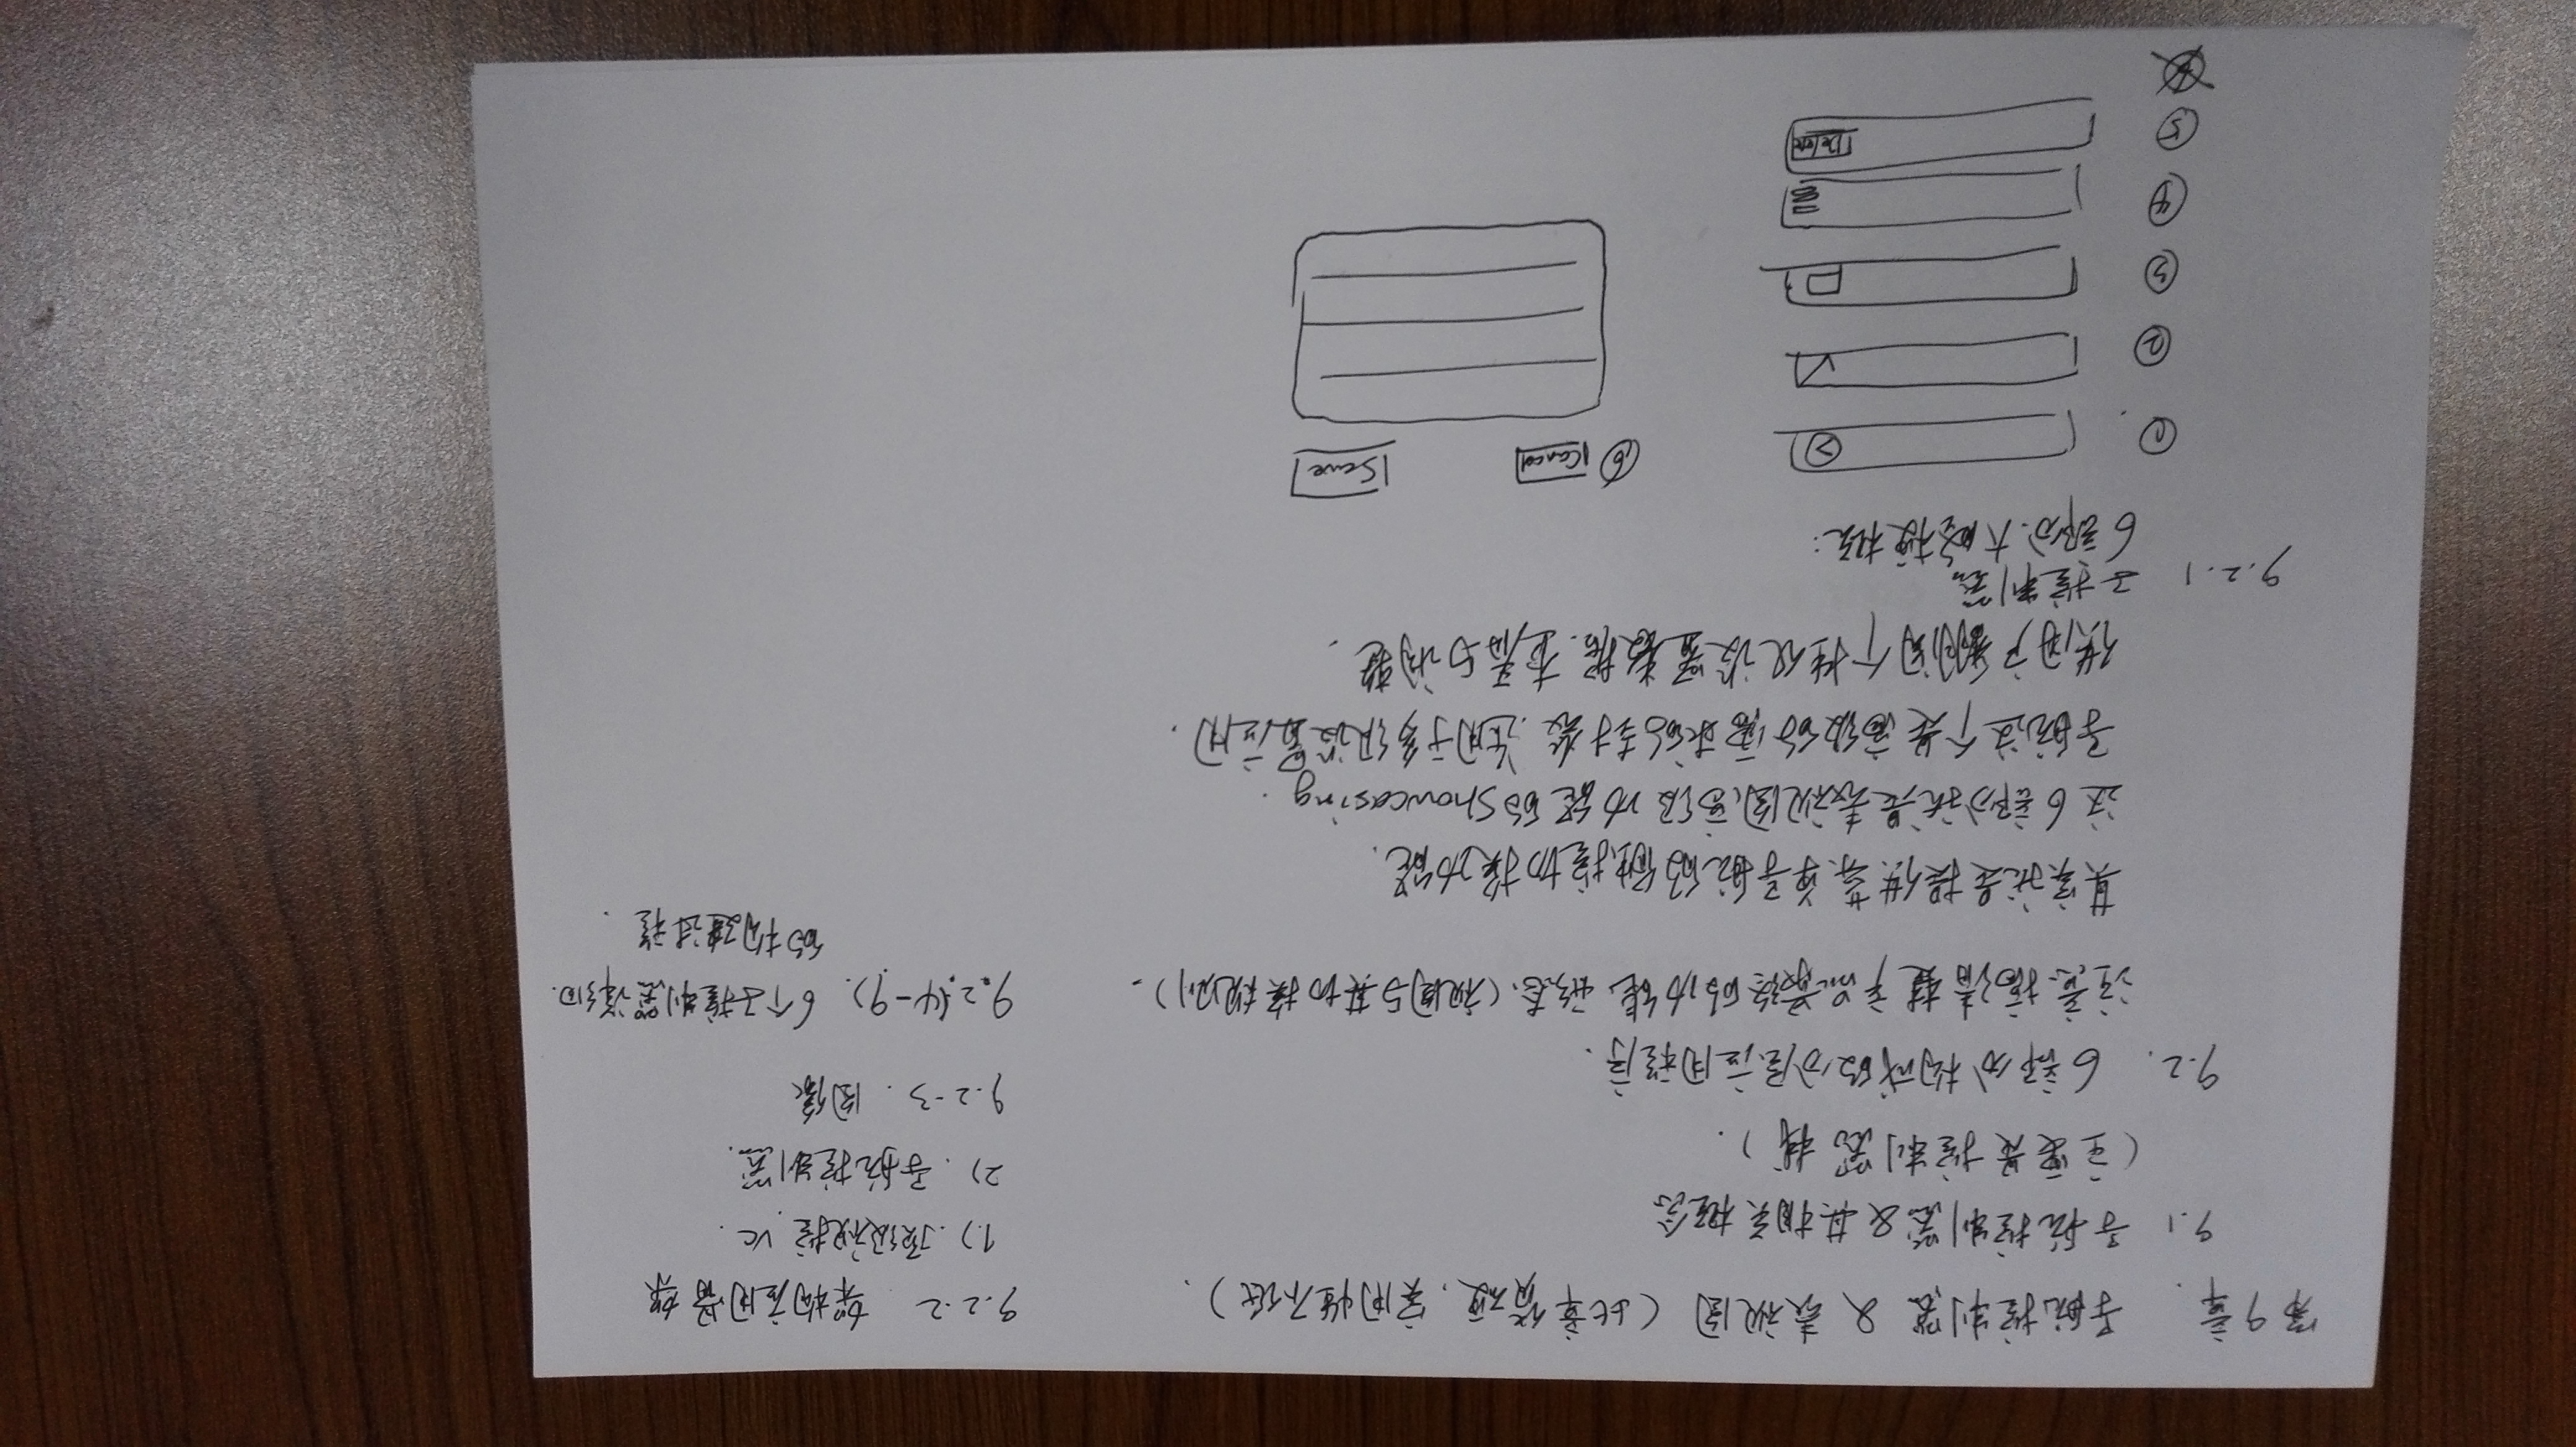 第9章. 导航控制器 & 表视图（此章货硬，实用性不低）.
9.1 导航控制器&其相关概念
（主要是控制器栈）.
9.2. 6部分构成的分层应用程序.
注意搞清楚产品最终的功能形态（视图与其切换规则）.
其实就是提供菜单导航的触控切换功能.
这6部分就是表视图高级功能的Showcasing.
导航这个是高级的需求的封装.适用于多级设置应用.
供用户翻阅个性化设置数据.查看与调整.
9.2.1 子控制器
6部分.大略梗概:
①.
②
③
④
⑤ Delete
⑥ Cancel Save
9.2.2 架构应用骨架
1.).顶级视控VC.
2).导航控制器.
9.2-3. 图像
9.2.(4-9). 6个子控制器详细.
的构建过程.